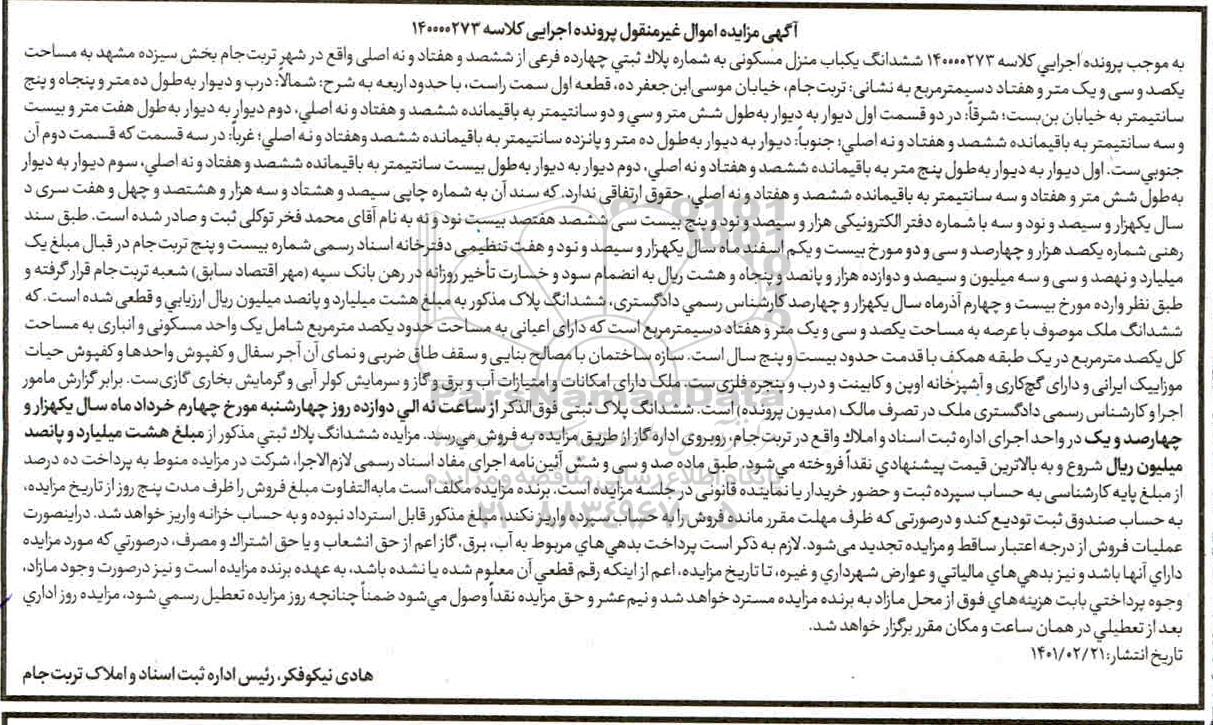 آگهی مزایده اموال غیرمنقول پرونده اجرایی کلاسه ۱۴۰۰۰۰۲۷۳
به موجب پرونده اجرایي کلاسه ۱۴۰۰۰۰۲۷۳ ششدانگ یکباب منزل مسکونی به شماره پلاك ثبتي چهارده فرعی از ششصد و هفتاد و نه اصلی واقع در شهر تربت‌جام بخش سیزده مشهد به مساحت
یکصد و سی و یک متر و هفتاد دسیمترمربع به نشانی: تربت‌جام، خیابان موسی‌ابن‌جعفر ده، قطعه اول سمت راست، با حدود اربعه به شرح: شمالاً: درب و دیوار به‌طول ده متر و پنجاه و پنج
سانتیمتر به خیابان بن‌بست؛ شرقاً: در دو قسمت اول دیوار به دیوار به‌طول شش متر و سی و دو سانتیمتر به باقیمانده ششصد و هفتاد و نه اصلي، دوم دیوار به دیوار به‌طول هفت متر و بیست
و سه سانتیمتر به باقیمانده ششصد و هفتاد و نه اصلي؛ جنوباً: دیوار به دیوار به‌طول ده متر و پانزده سانتیمتر به باقیمانده ششصد وهفتاد و نه اصلي؛ غرباً: در سه قسمت که قسمت دوم آن
جنوبي‌ست. اول دیوار به دیوار به‌طول پنج متر به باقیمانده ششصد و هفتاد و نه اصلي، دوم دیوار به دیوار به‌طول بیست سانتیمتر به باقیمانده ششصد و هفتاد و نه اصلي، سوم دیوار به دیوار
به‌طول شش متر و هفتاد و سه سانتیمتر به باقیمانده ششصد و هفتاد و نه اصلي، حقوق ارتفاقی ندارد. که سند آن به شماره چاپی سیصد و هشتاد و سه هزار و هشتصد و چهل و هفت سری د
سال یکهزار و سیصد و نود و سه با شماره دفتر الکترونیکی هزار و سیصد و نود و پنج بیست سی ششصد هفتصد بیست نود و نه به نام آقای محمد فخر توکلی ثبت و صادر شده است. طبق سند
رهنی شماره یکصد هزار و چهارصد و سی و دو مورخ بیست و یکم اسفند ماه سال یکهزار و سیصد و نود و هفت تنظیمی دفترخانه اسناد رسمی شماره بیست و پنج تربت‌جام در قبال مبلغ یک
میلیارد و نهصد و سی و سه میلیون و سیصد و دوازده هزار و پانصد و پنجاه و هشت ریال به انضمام سود و خسارت تأخیر روزانه در رهن بانک سپه (مهر اقتصاد سابق) شعبه تربت‌جام قرار گرفته و
طبق نظر وارده مورخ بیست و چهارم آذرماه سال یکهزار و چهارصد کارشناس رسمي دادگستری، ششدانگ پلاک مذکور به مبلغ هشت میلیارد و پانصد میلیون ریال ارزیابي و قطعی شده است. که
ششدانگ ملک موصوف با عرصه به مساحت یکصد و سی و یک متر و هفتاد دسیمترمربع است که دارای اعیانی به مساحت حدود یکصد مترمربع شامل یک واحد مسکونی و انباری به مساحت
کل یکصد مترمربع در یک طبقه همکف با قدمت حدود بیست و پنج سال است. سازه ساختمان با مصالح بنایی و سقف طاق ضربی و نمای آن آجر سفال و کفپوش واحدها و کفپوش حیات
موزاییک ایرانی و دارای گچ‌کاری و آشپزخانه اوپن و کابینت و درب و پنجره فلزی‌ست. ملک دارای امکانات و امتیازات آب و برق و گاز و سرمایش کولر آبی و گرمایش بخاری گازی‌ست. برابر گزارش مامور
اجرا و کارشناس رسمی دادگستری ملک در تصرف مالک (مدیون پرونده) است. ششدانگ پلاک ثبتی فوق‌الذکر از ساعت نه الي دوازده روز چهارشنبه مورخ چهارم خرداد ماه سال یکهزار و
چهارصد و یک در واحد اجرای اداره ثبت اسناد و املاك واقع در تربت‌جام، روبروی اداره گاز از طریق مزایده به فروش می‌رسد. مزایده ششدانگ پلاك ثبتي مذکور از مبلغ هشت میلیارد و پانصد
میلیون ریال شروع و به بالاترین قیمت پیشنهادي نقداً فروخته می‌شود. طبق ماده صد و سی و شش آئین‌نامه اجرای مفاد اسناد رسمی لازم‌الاجرا، شرکت در مزایده منوط به پرداخت ده درصد
از مبلغ پایه کارشناسی به حساب سپرده ثبت و حضور خریدار یا نماینده قانونی در جلسه مزایده است. برنده مزایده مکلف است مابه‌التفاوت مبلغ فروش را ظرف مدت پنج روز از تاریخ مزایده،
به حساب صندوق ثبت تودیع کند و درصورتی که ظرف مهلت مقرر مانده فروش را به حساب سپرده واریز نکند، مبلغ مذکور قابل استرداد نبوده و به حساب خزانه واریز خواهد شد. دراینصورت
عملیات فروش از درجه اعتبار ساقط و مزایده تجدید می‌شود. لازم به ذکر است پرداخت بدهی‌هاي مربوط به آب، برق، گاز اعم از حق انشعاب و یا حق اشتراك و مصرف، درصورتي که مورد مزایده
داراي آنها باشد و نیز بدهي‌هاي مالیاتي و عوارض شهرداري و غیره، تا تاریخ مزایده، اعم از اینکه رقم قطعي آن معلوم شده یا نشده باشد، به عهده برنده مزایده است و نیز درصورت وجود مازاد،
وجوه پرداختي بابت هزینه‌هاي فوق از محل مازاد به برنده مزایده مسترد خواهد شد و نیم‌عشر و حق مزایده نقداً وصول مي‌شود ضمناً چنانچه روز مزایده تعطیل رسمي شود، مزایده روز اداري
بعد از تعطیلي در همان ساعت و مکان مقرر برگزار خواهد شد.
تاریخ انتشار: ۱۴۰۱/۰۲/۲۱
هادی نیکوفکر، رئیس اداره ثبت اسناد و املاک تربت‌جام
ParsNamadData
پایگاه اطلاع رسانی مناقصه و مزایده
۰۲۱-۸۸۳۴۹۶۷۰-۵